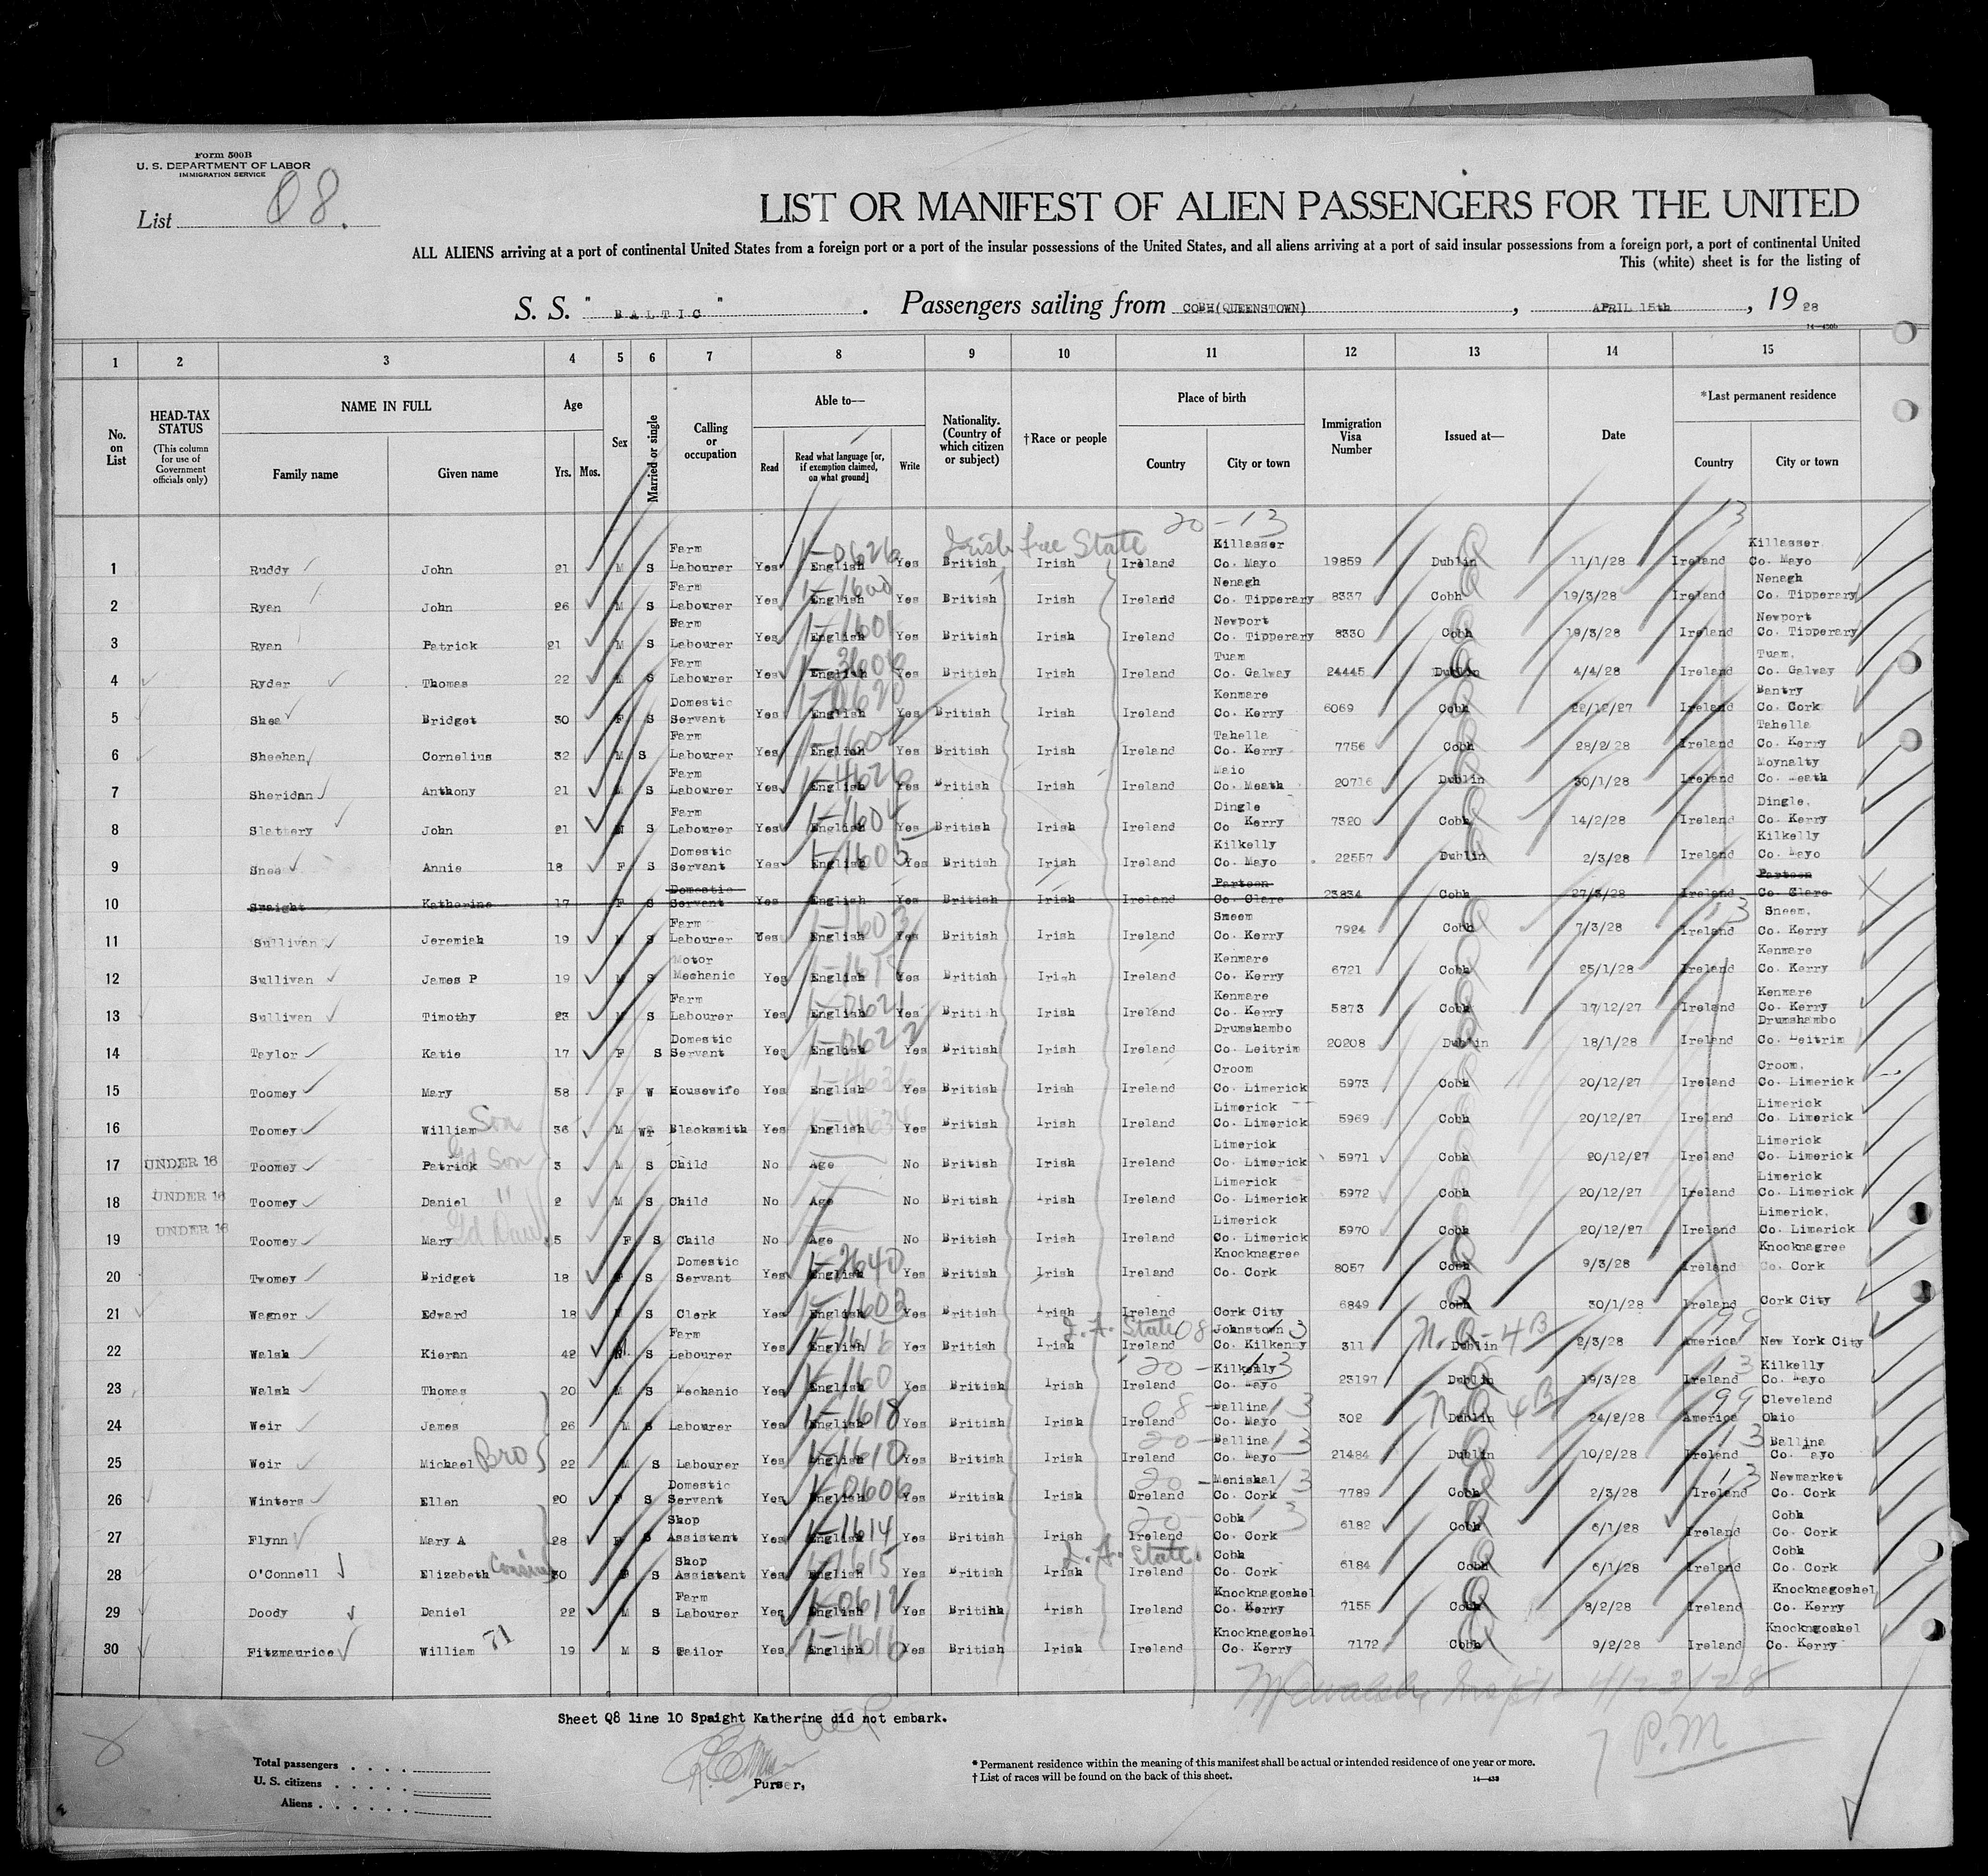 Form 500B
U. S. DEPARTMENT OF LABOR
IMMIGRATION SERVICE
List Q8.
LIST OR MANIFEST OF ALIEN PASSENGERS FOR THE UNITED
ALL ALIENS arriving at a port of continental United States from a foreign port or a port of the insular possessions of the United States, and all aliens arriving at a port of said insular possessions from a foreign port, a port of continental United
This (white) sheet is for the listing of
S. S. " BALTIC " . Passengers sailing from COBH(QUEENSTOWN) , APRIL 15th , 19 28
14—430b
1 2 3 4 5 6 7 8 9 10 11 12 13 14 15
No. on List HEAD-TAX STATUS (This column for use of Government officials only) NAME IN FULL Family name Given name Age Yrs. Mos. Sex Married or single Calling or occupation Able to— Read Read what language [or, if exemption claimed, on what ground] Write Nationality. (Country of which citizen or subject) †Race or people Place of birth Country City or town Immigration Visa Number Issued at— Date *Last permanent residence Country City or town
20 - 13 13
Irish Free State
1 Ruddy John 21 M S Farm Labourer Yes English Yes British Irish Ireland Killasser Co. Mayo 19859 Dublin 11/1/28 Ireland Killasser Co. Mayo
2 Ryan John 26 M S Farm Labourer Yes 1-1600 English Yes British Irish Ireland Nenagh Co. Tipperary 8337 Cobh 19/3/28 Ireland Nenagh Co. Tipperary
3 Ryan Patrick 21 M S Farm Labourer Yes 1-1601 English Yes British Irish Ireland Newport Co. Tipperary 8330 Cobh 19/3/28 Ireland Newport Co. Tipperary
4 Ryder Thomas 22 M S Farm Labourer Yes English Yes British Irish Ireland Tuam, Co. Galway 24445 Dublin 4/4/28 Ireland Tuam, Co. Galway
5 Shea Bridget 30 F S Domestic Servant Yes English Yes British Irish Ireland Kenmare Co. Kerry 6069 Cobh 22/12/27 Ireland Bantry Co. Cork
6 Sheehan Cornelius 32 M S Farm Labourer Yes English Yes British Irish Ireland Tahella Co. Kerry 7756 Cobh 28/2/28 Ireland Tahella Co. Kerry
7 Sheridan Anthony 21 M S Farm Labourer Yes English Yes British Irish Ireland Maio Co. Meath 20716 Dublin 30/1/28 Ireland Moynalty Co. Meath
8 Slattery John 21 M S Farm Labourer Yes 1-1604 English Yes British Irish Ireland Dingle Co Kerry 7320 Cobh 14/2/28 Ireland Dingle, Co. Kerry
9 Snee Annie 18 F S Domestic Servant Yes 1-1605 English Yes British Irish Ireland Kilkelly Co. Mayo 22557 Dublin 2/3/28 Ireland Kilkelly Co. Mayo
10 Spaight Katherine 17 F S Domestic Servant Yes English Yes British Irish Ireland Parteen Co. Clare 23834 Cobh 27/3/28 Ireland Parteen Co. Clare
11 Sullivan Jeremiah 19 M S Farm Labourer Yes English Yes British Irish Ireland Sneem Co. Kerry 7924 Cobh 7/3/28 Ireland Sneem, Co. Kerry
12 Sullivan James P 19 M S Motor Mechanic Yes English Yes British Irish Ireland Kenmare Co. Kerry 6721 Cobh 25/1/28 Ireland Kenmare Co. Kerry
13 Sullivan Timothy 23 M S Farm Labourer Yes English Yes British Irish Ireland Kenmare Co. Kerry 5873 Cobh 17/12/27 Ireland Kenmare Co. Kerry
14 Taylor Katie 17 F S Domestic Servant Yes English Yes British Irish Ireland Drumshambo Co. Leitrim 20208 Dublin 18/1/28 Ireland Drumshambo Co. Leitrim
15 Toomey Mary 58 F W Housewife Yes English Yes British Irish Ireland Croom Co. Limerick 5973 Cobh 20/12/27 Ireland Croom, Co. Limerick
16 Toomey William Son 36 M Wr Blacksmith Yes English Yes British Irish Ireland Limerick Co. Limerick 5969 Cobh 20/12/27 Ireland Limerick Co. Limerick
17 UNDER 16 Toomey Patrick Gd Son 3 M S Child No Age No British Irish Ireland Limerick Co. Limerick 5971 Cobh 20/12/27 Ireland Limerick Co. Limerick
18 UNDER 16 Toomey Daniel " 2 M S Child No Age No British Irish Ireland Limerick Co. Limerick 5972 Cobh 20/12/27 Ireland Limerick Co. Limerick
19 UNDER 16 Toomey Mary Gd Dau 5 F S Child No Age No British Irish Ireland Limerick Co. Limerick 5970 Cobh 20/12/27 Ireland Limerick, Co. Limerick
20 Twomey Bridget 18 F S Domestic Servant Yes 1-2640 English Yes British Irish Ireland Knocknagree Co. Cork 8057 Cobh 9/3/28 Ireland Knocknagree Co. Cork
21 Wagner Edward 18 M S Clerk Yes English Yes British Irish Ireland Cork City 6849 Cobh 30/1/28 Ireland Cork City
22 Walsh Kieran 42 M S Farm Labourer Yes English Yes British Irish I.F. State 08 Ireland Johnstown 13 Co. Kilkenny 311 N.Q-4B Dublin 2/3/28 99 America New York City
23 Walsh Thomas 20 M S Mechanic Yes 1-160 English Yes British Irish 20 - Ireland Kilkelly 13 Co. Mayo 23197 Dublin 19/3/28 13 Ireland Kilkelly Co. Mayo
24 Weir James 26 M S Labourer Yes 1-1618 English Yes British Irish 08 - Ireland Ballina 13 Co. Mayo 302 N.Q-4B Dublin 24/2/28 99 America Cleveland Ohio
25 Weir Michael Bros 22 M S Labourer Yes 1-1610 English Yes British Irish 20 - Ireland Ballina 13 Co. Mayo 21484 Dublin 10/2/28 13 Ireland Ballina Co. ayo
26 Winters Ellen 20 F S Domestic Servant Yes 1-0606 English Yes British Irish 20 - Ireland Menishal 13 Co. Cork 7789 Cobh 2/3/28 13 Ireland Newmarket Co. Cork
27 Flynn Mary A 28 F S Shop Assistant Yes 1-1614 English Yes British Irish 20 - Ireland Cobh 13 Co. Cork 6182 Cobh 6/1/28 Ireland Cobh Co. Cork
28 O'Connell Elizabeth Cousins 30 F S Shop Assistant Yes 1-1615 English Yes British Irish I.F. State. Ireland Cobh Co. Cork 6184 Cobh 6/1/28 Ireland Cobh Co. Cork
29 Doody Daniel 22 M S Farm Labourer Yes 1-0612 English Yes Britihh Irish Ireland Knocknagoshel Co. Kerry 7155 Cobh 8/2/28 Ireland Knocknagoshel Co. Kerry
30 Fitzmaurice William 71 19 M S Tailor Yes 1-1616 English Yes British Irish Ireland Knocknagoshel Co. Kerry 7172 Cobh 9/2/28 Ireland Knocknagoshel Co. Kerry
Sheet Q8 line 10 Spaight Katherine did not embark.
7 P.M
Total passengers . . . .
U. S. citizens . . . . .
Aliens . . . . . .
Purser,
* Permanent residence within the meaning of this manifest shall be actual or intended residence of one year or more.
† List of races will be found on the back of this sheet.
14—433